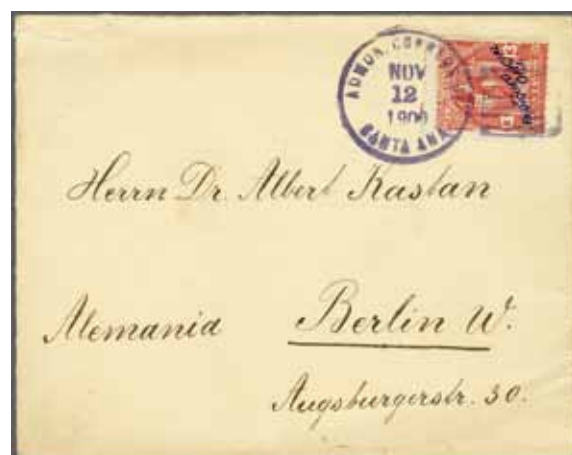 ADMON. CORREOS
NOV
12
1900
SANTA ANA
13
13
Herrn Dr. Albert Kastan
Alemania Berlin W.
Augsburgerstr. 30.